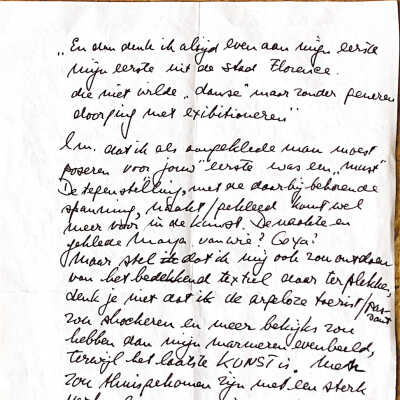 „En dan denk ik altijd even aan mijn eerste
mijn eerste uit de stad Florence.
die niet wilde „danse" maar zonder generen
doorging met exibitioneren"
I.m. dat ik als aangeklede man moest
poseren voor jouw "eerste was een „must"
De tegenstelling, met de daarbij behorende
spanning, naakt/gekleed komt wel
meer voor in de kunst. De naakte en
geklede Maya van wie? Goya?
Maar stel dat ik mij ook zou ontdoen
van het bedekkend textiel daar ter plekke,
denk je niet dat ik de argeloze toerist/pas-
sant
zou shockeren en meer bekijks zou
hebben dan mijn marmeren evenbeeld,
terwijl het laatste KUNST is. Men
zou thuisgekomen zijn met een sterk